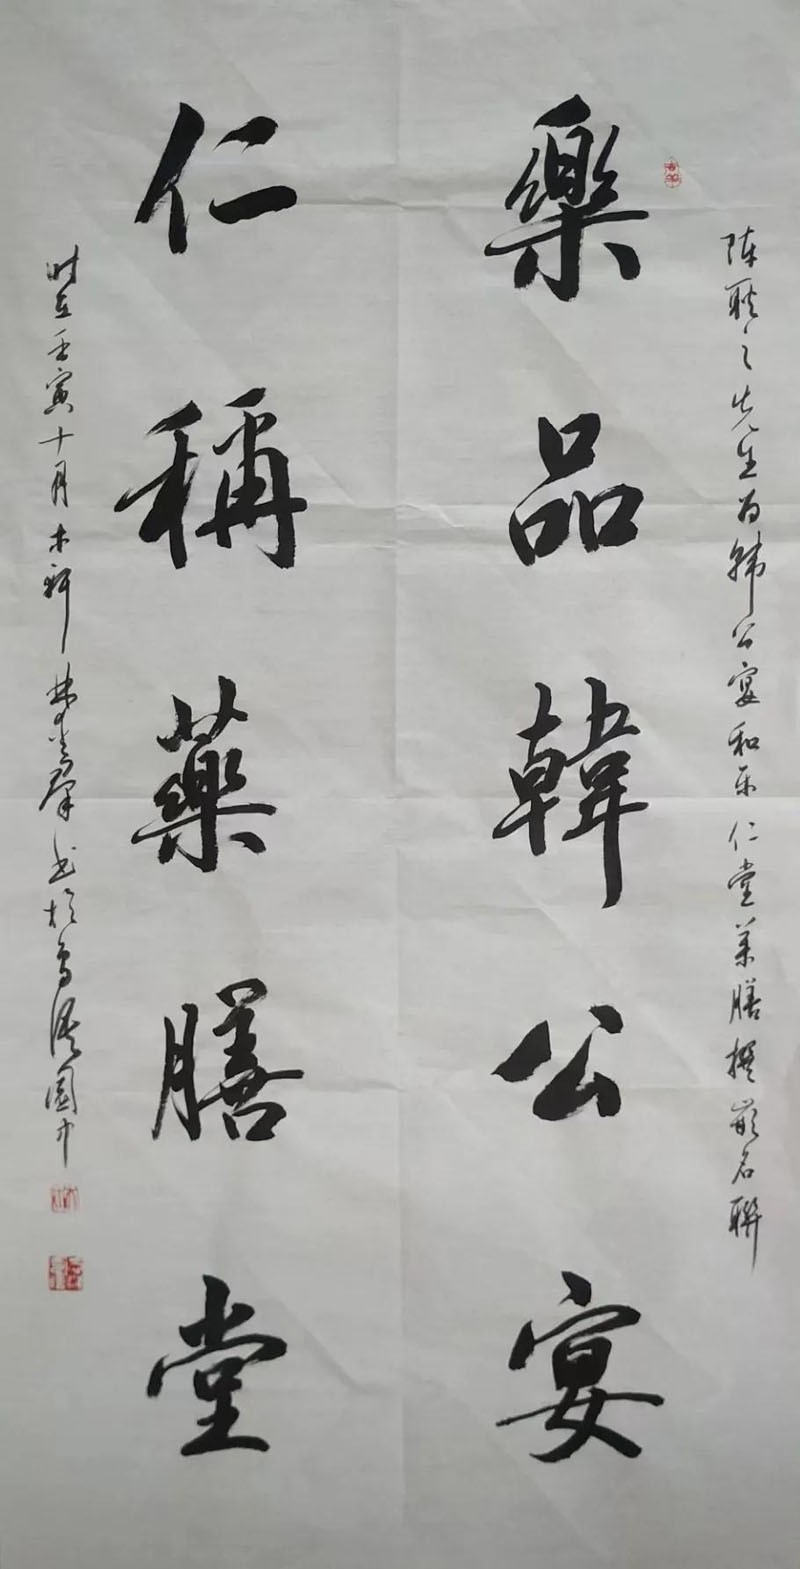 陈联之先生为韩公宴和乐仁堂药膳撰嵌名联
樂品韓公宴
仁稱藥膳堂
时在壬寅十月木
群书于
园中